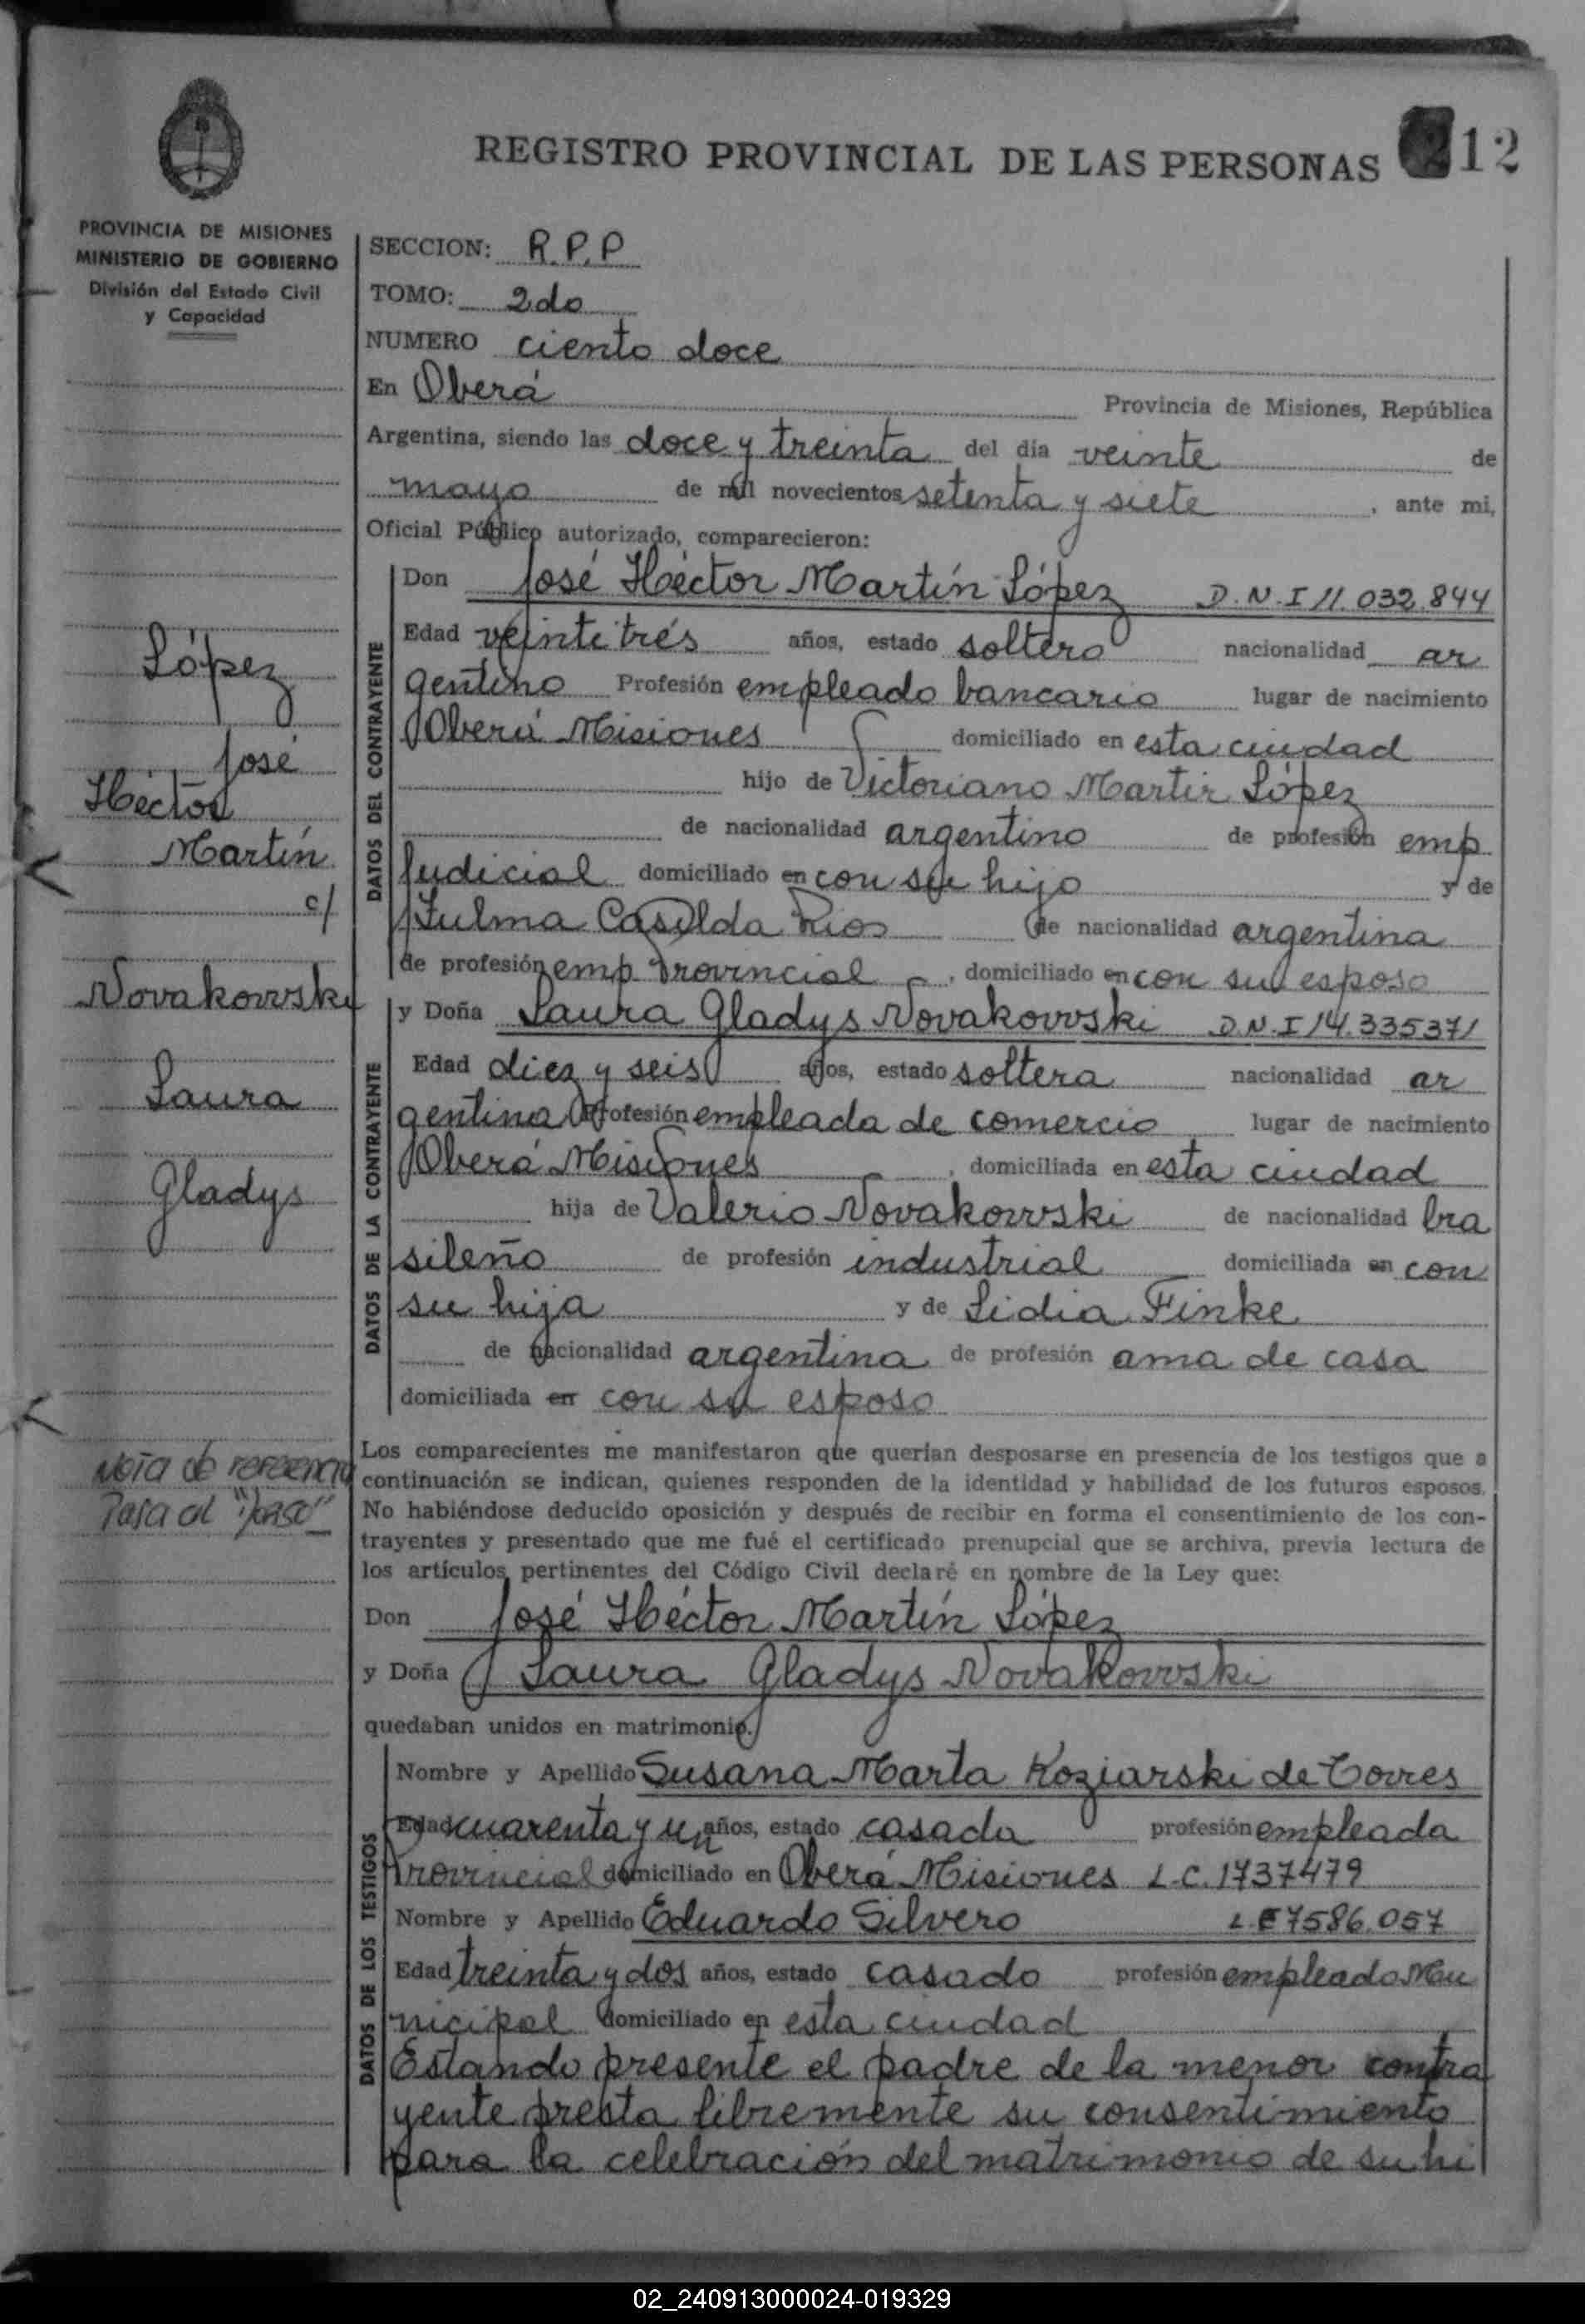 REGISTRO PROVINCIAL DE LAS PERSONAS 212
PROVINCIA DE MISIONES
MINISTERIO DE GOBIERNO
División del Estado Civil
y Capacidad
López
José
Héctor
Martín
c/
Novakowski
Laura
Gladys
Nota de referencia
Pasa al "dorso"
SECCION: R.P.P
TOMO: 2do
NUMERO ciento doce
En Oberá Provincia de Misiones, República
Argentina, siendo las doce y treinta del día veinte de
mayo de mil novecientos setenta y siete, ante mi,
Oficial Público autorizado, comparecieron:
DATOS DEL CONTRAYENTE
Don José Héctor Martín López D.N.I 11.032.844
Edad veintitrés años, estado soltero nacionalidad ar
gentino Profesión empleado bancario lugar de nacimiento
Oberá Misiones domiciliado en esta ciudad
hijo de Victoriano Martir López
de nacionalidad argentino de profesión emp
Judicial domiciliado en con su hijo y de
Zulma Casilda Rios de nacionalidad argentina
de profesión emp. Provincial, domiciliado en con su esposo
DATOS DE LA CONTRAYENTE
y Doña Laura Gladys Novakowski D.N.I 14.335371
Edad diez y seis años, estado soltera nacionalidad ar
gentina Profesión empleada de comercio lugar de nacimiento
Oberá Misiones, domiciliada en esta ciudad
hija de Valerio Novakowski de nacionalidad bra
sileño de profesión industrial domiciliada en con
su hija y de Lidia Finke
de nacionalidad argentina de profesión ama de casa
domiciliada en con su esposo
Los comparecientes me manifestaron que querían desposarse en presencia de los testigos que a
continuación se indican, quienes responden de la identidad y habilidad de los futuros esposos.
No habiéndose deducido oposición y después de recibir en forma el consentimiento de los con-
trayentes y presentado que me fué el certificado prenupcial que se archiva, previa lectura de
los artículos pertinentes del Código Civil declaré en nombre de la Ley que:
Don José Héctor Martín López
y Doña Laura Gladys Novakowski
quedaban unidos en matrimonio.
DATOS DE LOS TESTIGOS
Nombre y Apellido Susana Marta Koziarski de Torres
Edad cuarenta y un años, estado casada profesión empleada
Provincial domiciliado en Oberá Misiones L.C. 1737479
Nombre y Apellido Eduardo Silvero L.E 7586.057
Edad treinta y dos años, estado casado profesión empleado Mu
nicipal domiciliado en esta ciudad
Estando presente el padre de la menor contra
yente presta libremente su consentimiento
para la celebración del matrimonio de su hi
02_240913000024-019329